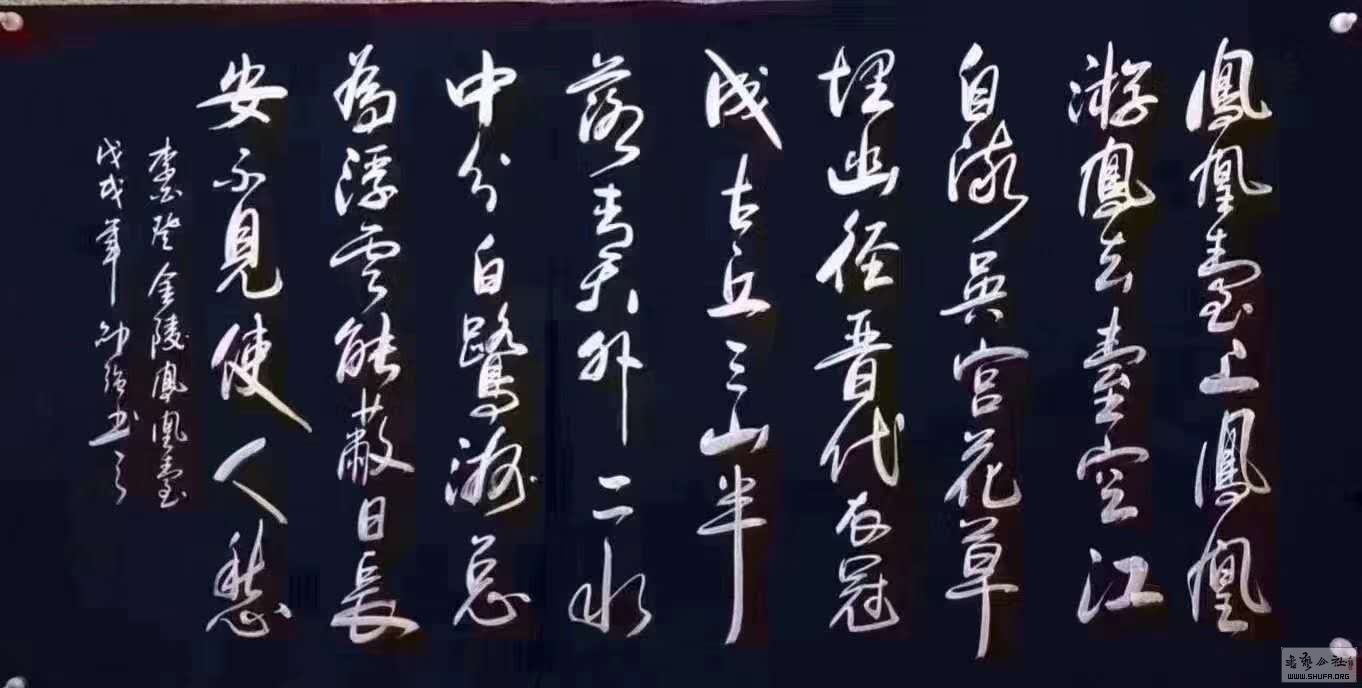 鳳凰臺上鳳凰
游鳳去臺空江
自流吳宮花草
埋幽径晋代衣冠
成古丘三山半
落青天外二水
中分白鷺洲总
為浮雲能蔽日長
安不見使人愁
李白登金陵鳳凰臺
戊戌年 书之
书艺公社
WWW.SHUFA.ORG